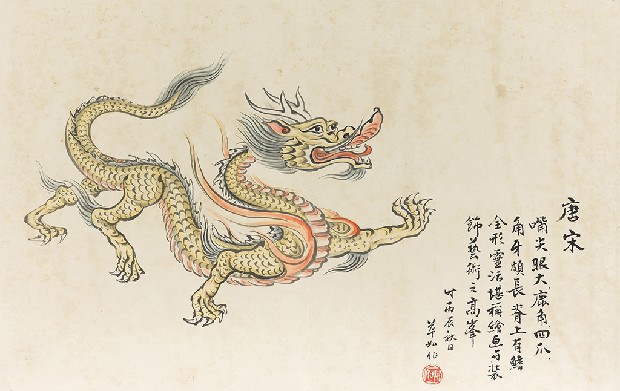 唐宋
嘴尖眼大鹿角四爪
角牙頗長脊上有鰭
全形靈活堪稱繪画与裝
飾藝術之高峯
时丙辰秋日
如作